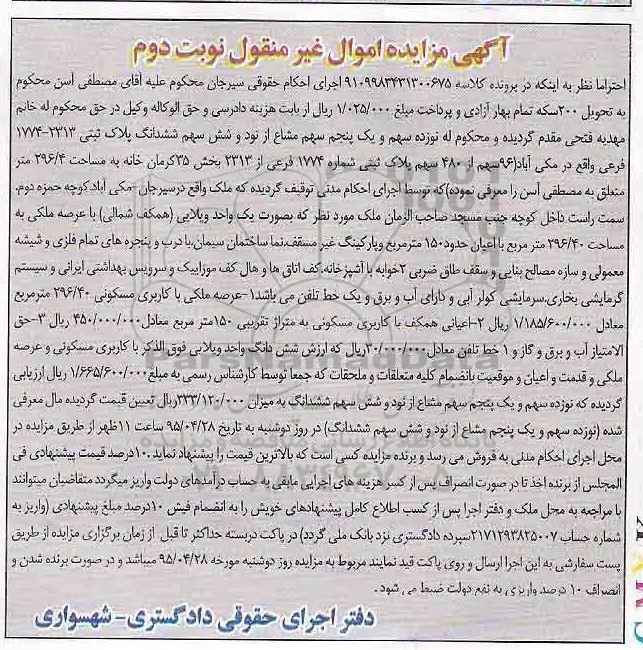 آگهی مزایده اموال غیر منقول نوبت دوم
احتراما نظر به اینکه در پرونده کلاسه ۹۱۰۹۹۸۳۴۳۱۳۰۰۶۷۵ اجرای احکام حقوقی سیرجان محکوم علیه آقای مصطفی آسن محکوم
به تحویل ۲۰۰سکه تمام بهار آزادی و پرداخت مبلغ ۱/۰۲۵/۰۰۰ ریال از بابت هزینه دادرسی و حق الوکاله وکیل در حق محکوم له خانم
مهدیه فتحی مقدم گردیده و محکوم له نوزده سهم و یک پنجم سهم مشاع از نود و شش سهم ششدانگ پلاک ثبتی ۲۳۱۳-۱۷۷۴
فرعی واقع در مکی آباد(۹۶سهم از ۴۸۰ سهم پلاک ثبتی شماره ۱۷۷۴ فرعی از ۲۳۱۳ بخش ۳۵کرمان خانه به مساحت ۲۹۶/۴ متر
متعلق به مصطفی آسن را معرفی نموده)که توسط اجرای احکام مدنی توقیف گردیده که ملک واقع درسیرجان -مکی آباد.کوچه حمزه دوم.
سمت راست داخل کوچه جنب مسجد صاحب الزمان ملک مورد نظر که بصورت یک واحد ویلایی (همکف شمالی) با عرصه ملکی به
مساحت ۲۹۶/۴۰ متر مربع با اعیان حدود۱۵۰ مترمربع وپارکینگ غیر مسقف.نما ساختمان سیمان.با درب و پنجره های تمام فلزی و شیشه
معمولی و سازه مصالح بنایی و سقف طاق ضربی ۲خوابه با آشپزخانه.کف اتاق ها و هال کف موزاییک و سرویس بهداشتی ایرانی و سیستم
گرمایشی بخاری.سرمایشی کولر آبی و دارای آب و برق و یک خط تلفن می باشد۱-عرصه ملکی با کاربری مسکونی ۲۹۶/۴۰ مترمربع
معادل ۱/۱۸۵/۶۰۰/۰۰۰ ریال ۲-اعیانی همکف با کاربری مسکونی به متراژ تقریبی ۱۵۰متر مربع معادل۴۵۰/۰۰۰/۰۰۰ ریال ۳-حق
الامتیاز آب و برق و گاز و ۱ خط تلفن معادل۳۰/۰۰۰/۰۰۰ریال که ارزش شش دانگ واحد ویلایی فوق الذکر با کاربری مسکونی و عرصه
ملکی و قدمت و اعیان و موقعیت بانضمام کلیه متعلقات و ملحقات که جمعا توسط کارشناس رسمی به مبلغ۱/۶۶۵/۶۰۰/۰۰۰ ریال ارزیابی
گردیده که نوزده سهم و یک پنجم سهم مشاع از نود و شش سهم ششدانگ به میزان ۳۳۳/۱۲۰/۰۰۰ریال تعیین قیمت گردیده مال معرفی
شده (نوزده سهم و یک پنجم مشاع از نود و شش سهم ششدانگ) در روز دوشنبه به تاریخ ۹۵/۰۴/۲۸ ساعت ۱۱ظهر از طریق مزایده در
محل اجرای احکام مدنی به فروش می رسد و برنده مزایده کسی است که بالاترین قیمت را پیشنهاد نماید.۱۰درصد قیمت پیشنهادی فی
المجلس از برنده اخذ تا در صورت انصراف پس از کسر هزینه های اجرایی مابقی به حساب درآمدهای دولت واریز میگردد متقاضیان میتوانند
با مراجعه به محل ملک و دفتر اجرا پس از کسب اطلاع کامل پیشنهادهای خویش را به انضمام فیش ۱۰درصد مبلغ پیشنهادی (واریز به
شماره حساب ۲۱۷۱۲۹۳۸۲۵۰۰۷سپرده دادگستری نزد بانک ملی گردد) در پاکت دربسته حداکثر تا قبل از زمان برگزاری مزایده از طریق
پست سفارشی به این اجرا ارسال و روی پاکت قید نمایند مربوط به مزایده روز دوشنبه مورخه ۹۵/۰۴/۲۸ میباشد و در صورت برنده شدن و
انصراف ۱۰ درصد واریزی به نفع دولت ضبط می شود.
دفتر اجرای حقوقی دادگستری- شهسواری